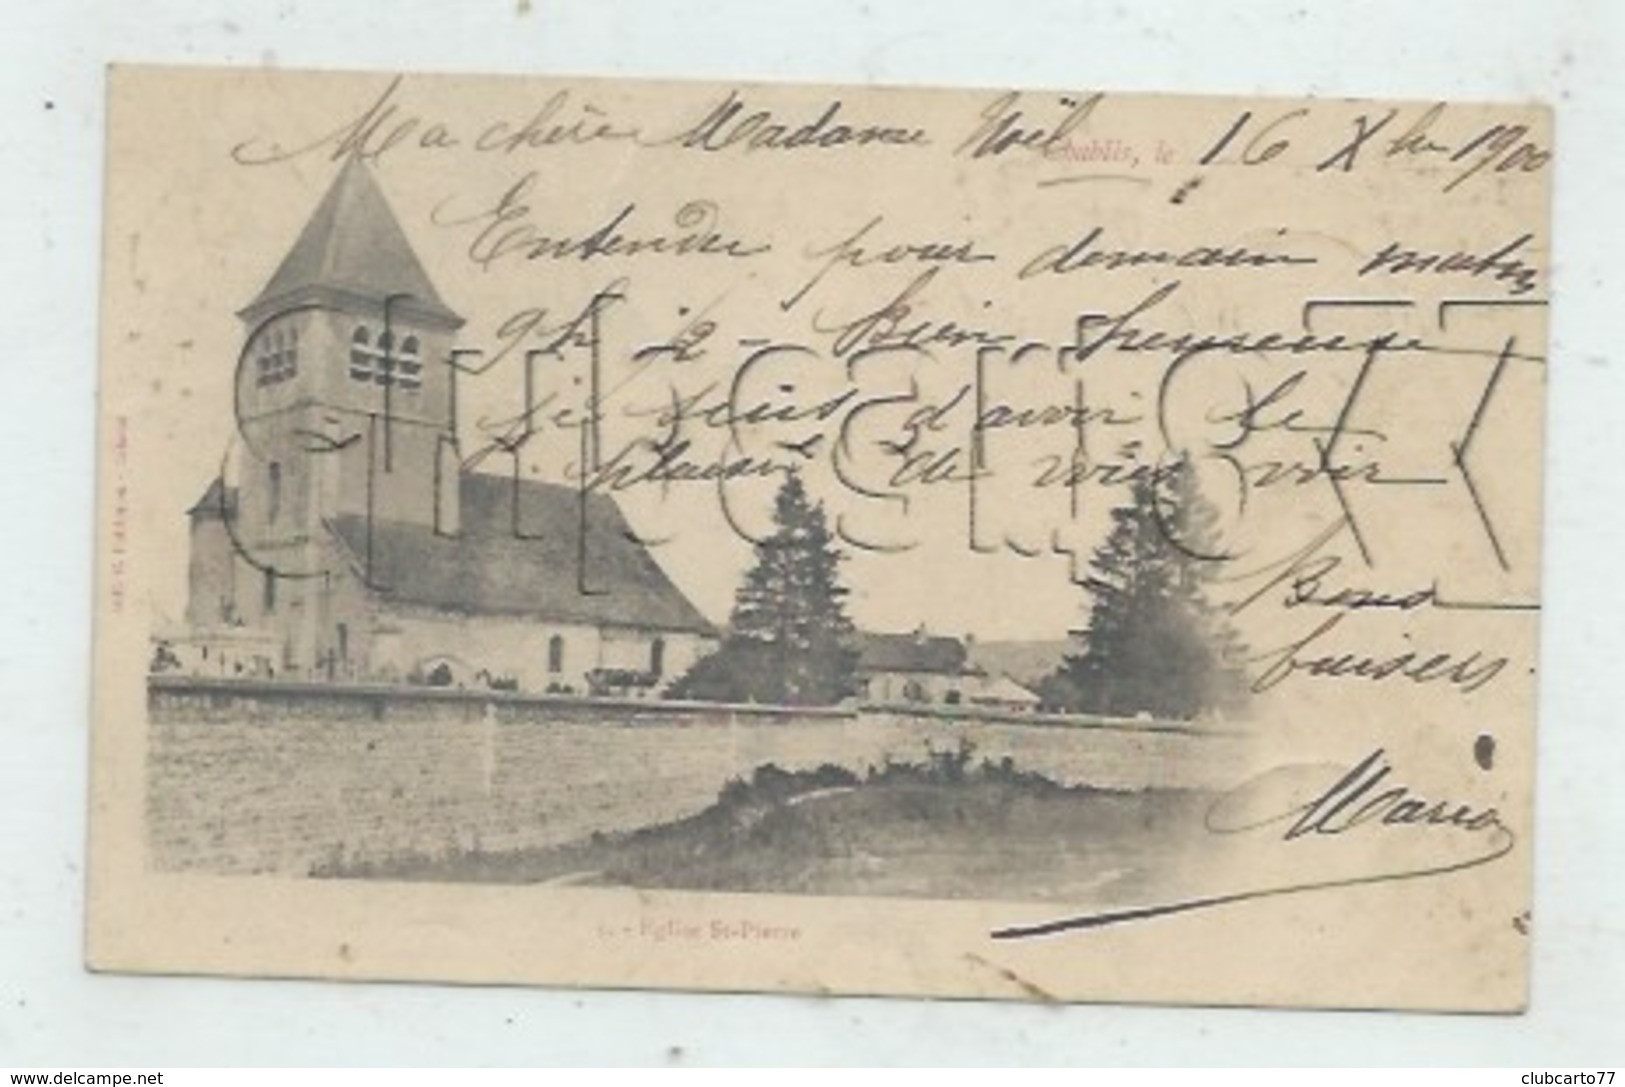 Ma chère Madame Noël
Chablis, le 16 Xbre 1900
Entendu pour demain matin
9h ½ - Bien heureuse
je suis d'avoir le
plaisir de vous voir
Bons
baisers.
Maria
- Eglise St-Pierre
www.delcampe.net
clubcarto77